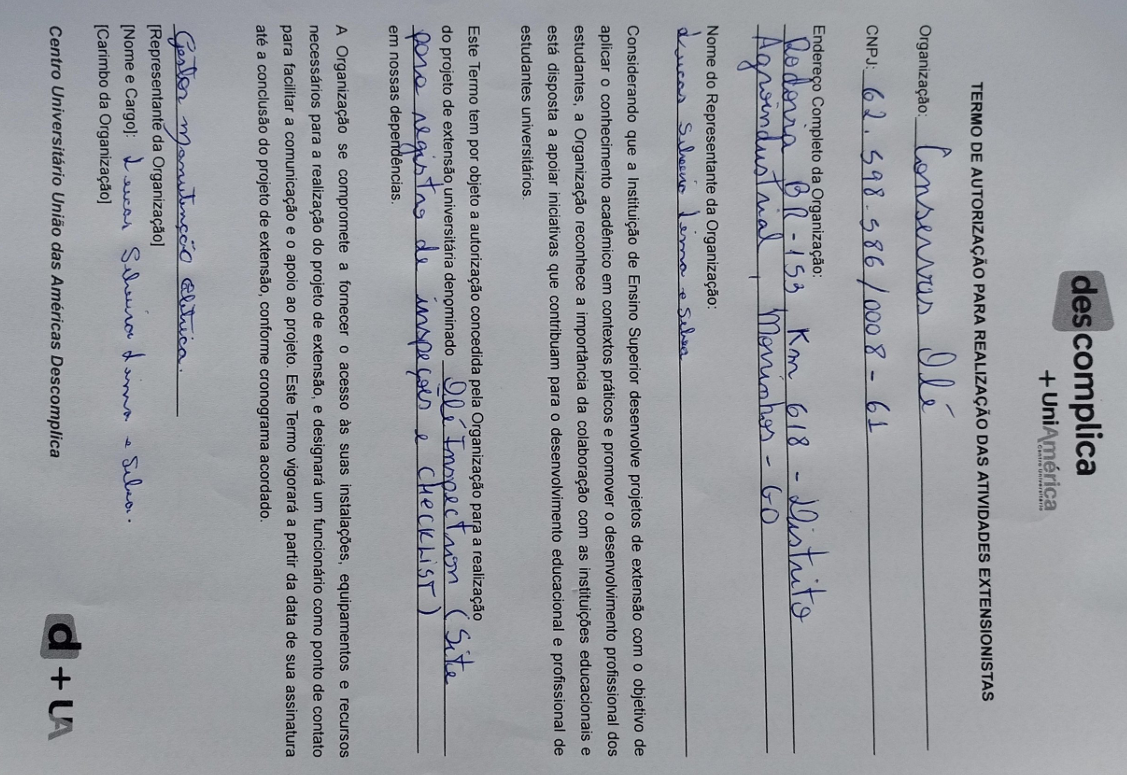 descomplica
+ UniAmérica
Centro Universitário
TERMO DE AUTORIZAÇÃO PARA REALIZAÇÃO DAS ATIVIDADES EXTENSIONISTAS
Organização: Conservas Olé
CNPJ: 62.598.586/0008-61
Endereço Completo da Organização:
Rodovia BR-153 Km 618 - Distrito
Agroindustrial, Morrinhos - GO
Nome do Representante da Organização:
Lucas Silveira Lima e Silva
Considerando que a Instituição de Ensino Superior desenvolve projetos de extensão com o objetivo de
aplicar o conhecimento acadêmico em contextos práticos e promover o desenvolvimento profissional dos
estudantes, a Organização reconhece a importância da colaboração com as instituições educacionais e
está disposta a apoiar iniciativas que contribuam para o desenvolvimento educacional e profissional de
estudantes universitários.
Este Termo tem por objeto a autorização concedida pela Organização para a realização
do projeto de extensão universitária denominado Olé Inspection (Site
para registro de inspeções e CHECKLIST)
em nossas dependências.
A Organização se compromete a fornecer o acesso às suas instalações, equipamentos e recursos
necessários para a realização do projeto de extensão, e designará um funcionário como ponto de contato
para facilitar a comunicação e o apoio ao projeto. Este Termo vigorará a partir da data de sua assinatura
até a conclusão do projeto de extensão, conforme cronograma acordado.
Gestor Manutenção Elétrica.
[Representante da Organização]
[Nome e Cargo]: Lucas Silveira Lima e Silva.
[Carimbo da Organização]
Centro Universitário União das Américas Descomplica
d + UA